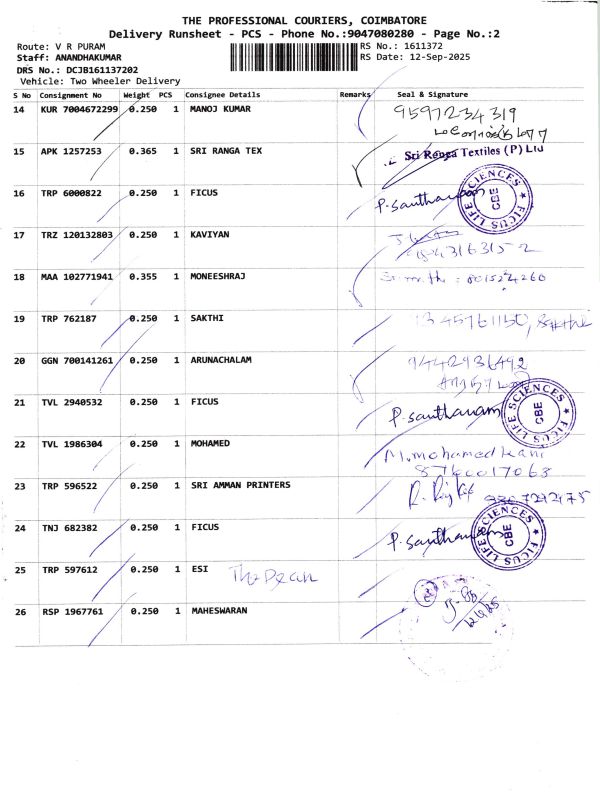 THE PROFESSIONAL COURIERS, COIMBATORE
Delivery Runsheet - PCS - Phone No.:9047080280 - Page No.:2
Route: V R PURAM
RS No.: 1611372
Staff: ANANDHAKUMAR
RS Date: 12-Sep-2025
DRS No.: DCJB161137202
Vehicle: Two Wheeler Delivery
S No Consignment No Weight PCS Consignee Details Remarks Seal & Signature
14 KUR 7004672299 0.250 1 MANOJ KUMAR 9597234319
15 APK 1257253 0.365 1 SRI RANGA TEX Sri Ranga Textiles (P) Ltd
16 TRP 6000822 0.250 1 FICUS P. Santhanam FICUS LIFE SCIENCES CBE
17 TRZ 120132803 0.250 1 KAVIYAN
18 MAA 102771941 0.355 1 MONEESHRAJ
19 TRP 762187 0.250 1 SAKTHI
20 GGN 700141261 0.250 1 ARUNACHALAM 9442936492
21 TVL 2940532 0.250 1 FICUS P. Santhanam FICUS LIFE SCIENCES CBE
22 TVL 1986304 0.250 1 MOHAMED M.mohamed kani
23 TRP 596522 0.250 1 SRI AMMAN PRINTERS
24 TNJ 682382 0.250 1 FICUS P. Santhanam FICUS LIFE SCIENCES CBE
25 TRP 597612 0.250 1 ESI The Dean
26 RSP 1967761 0.250 1 MAHESWARAN